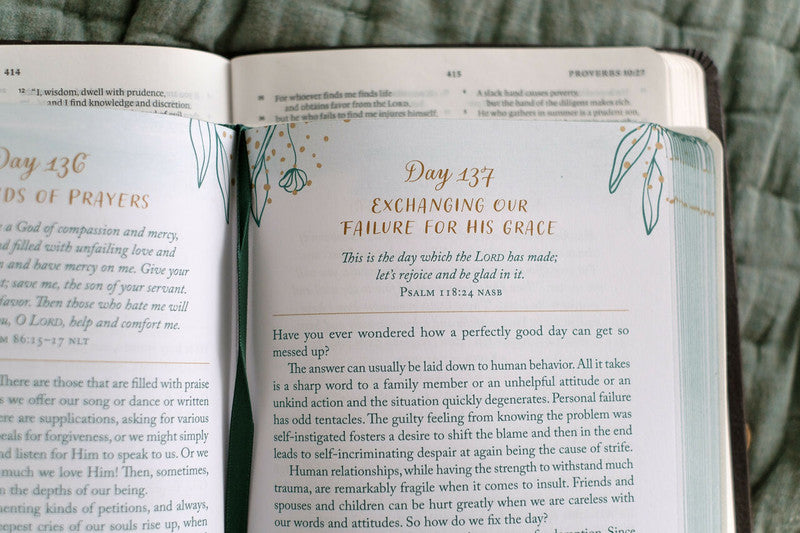 414
12 "I, wisdom, dwell with prudence,
and I find knowledge and discretion.
415
PROVERBS 10:27
35 For whoever finds me finds life
and obtains favor from the LORD,
36 but he who fails to find me injures himself;
4 A slack hand causes poverty,
but the hand of the diligent makes rich.
5 He who gathers in summer is a prudent son,
Day 136
DS OF PRAYERS
a God of compassion and mercy,
d filled with unfailing love and
and have mercy on me. Give your
t; save me, the son of your servant.
favor. Then those who hate me will
u, O LORD, help and comfort me.
M 86:15–17 NLT
There are those that are filled with praise
s we offer our song or dance or written
ere are supplications, asking for various
eals for forgiveness, or we might simply
nd listen for Him to speak to us. Or we
much we love Him! Then, sometimes,
n the depths of our being.
menting kinds of petitions, and always,
eepest cries of our souls rise up, when
Day 137
EXCHANGING OUR
FAILURE FOR HIS GRACE
This is the day which the LORD has made;
let's rejoice and be glad in it.
PSALM 118:24 NASB
Have you ever wondered how a perfectly good day can get so
messed up?
The answer can usually be laid down to human behavior. All it takes
is a sharp word to a family member or an unhelpful attitude or an
unkind action and the situation quickly degenerates. Personal failure
has odd tentacles. The guilty feeling from knowing the problem was
self-instigated fosters a desire to shift the blame and then in the end
leads to self-incriminating despair at again being the cause of strife.
Human relationships, while having the strength to withstand much
trauma, are remarkably fragile when it comes to insult. Friends and
spouses and children can be hurt greatly when we are careless with
our words and attitudes. So how do we fix the day?
Since